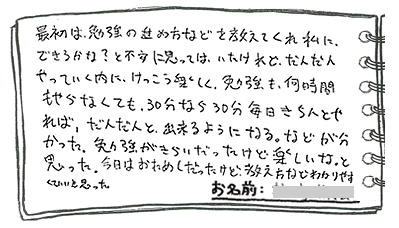 最初は、勉強の進め方などを教えてくれ私に、
できるかな？と不安に思っては、いたけれど、だんだん
やっていく内に、けっこう楽しく、勉強も、何時間
もやらなくても、30分なら30分毎日きちんとや
れば、だんだんと、出来るようになる。などが分
かった。勉強がきらいだったけど楽しいな。と
思った。今日はおためしだったけど、教え方などわかりやす
くていいと思った
お名前：